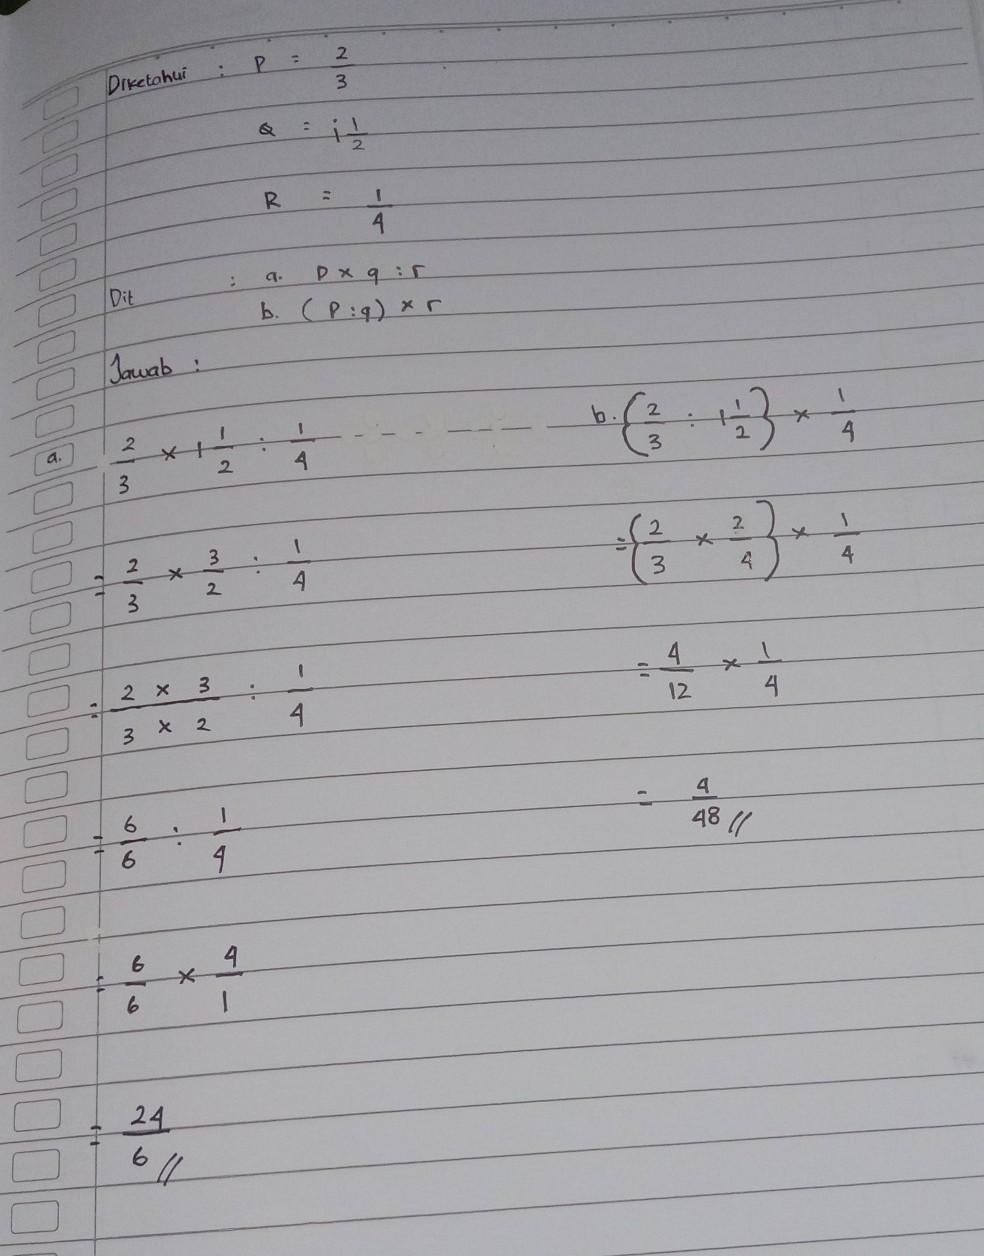 Diketahui : P = 2/3
Q = 1 1/2
R = 1/4
Dit : a. p × q : r
b. (p : q) × r
Jawab :
a. 2/3 × 1 1/2 : 1/4
= 2/3 × 3/2 : 1/4
= 2 × 3 / 3 × 2 : 1/4
= 6/6 : 1/4
= 6/6 × 4/1
= 24/6 //
b. (2/3 : 1 1/2) × 1/4
= (2/3 × 2/4) × 1/4
= 4/12 × 1/4
= 4/48 //